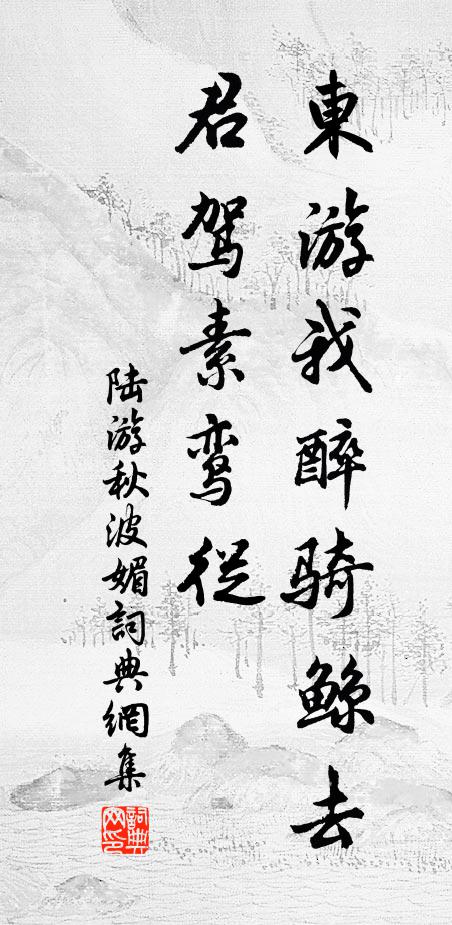 東游我醉骑鲸去
君驾素鸾從
陆游秋波媚詞典網集
詞典网印